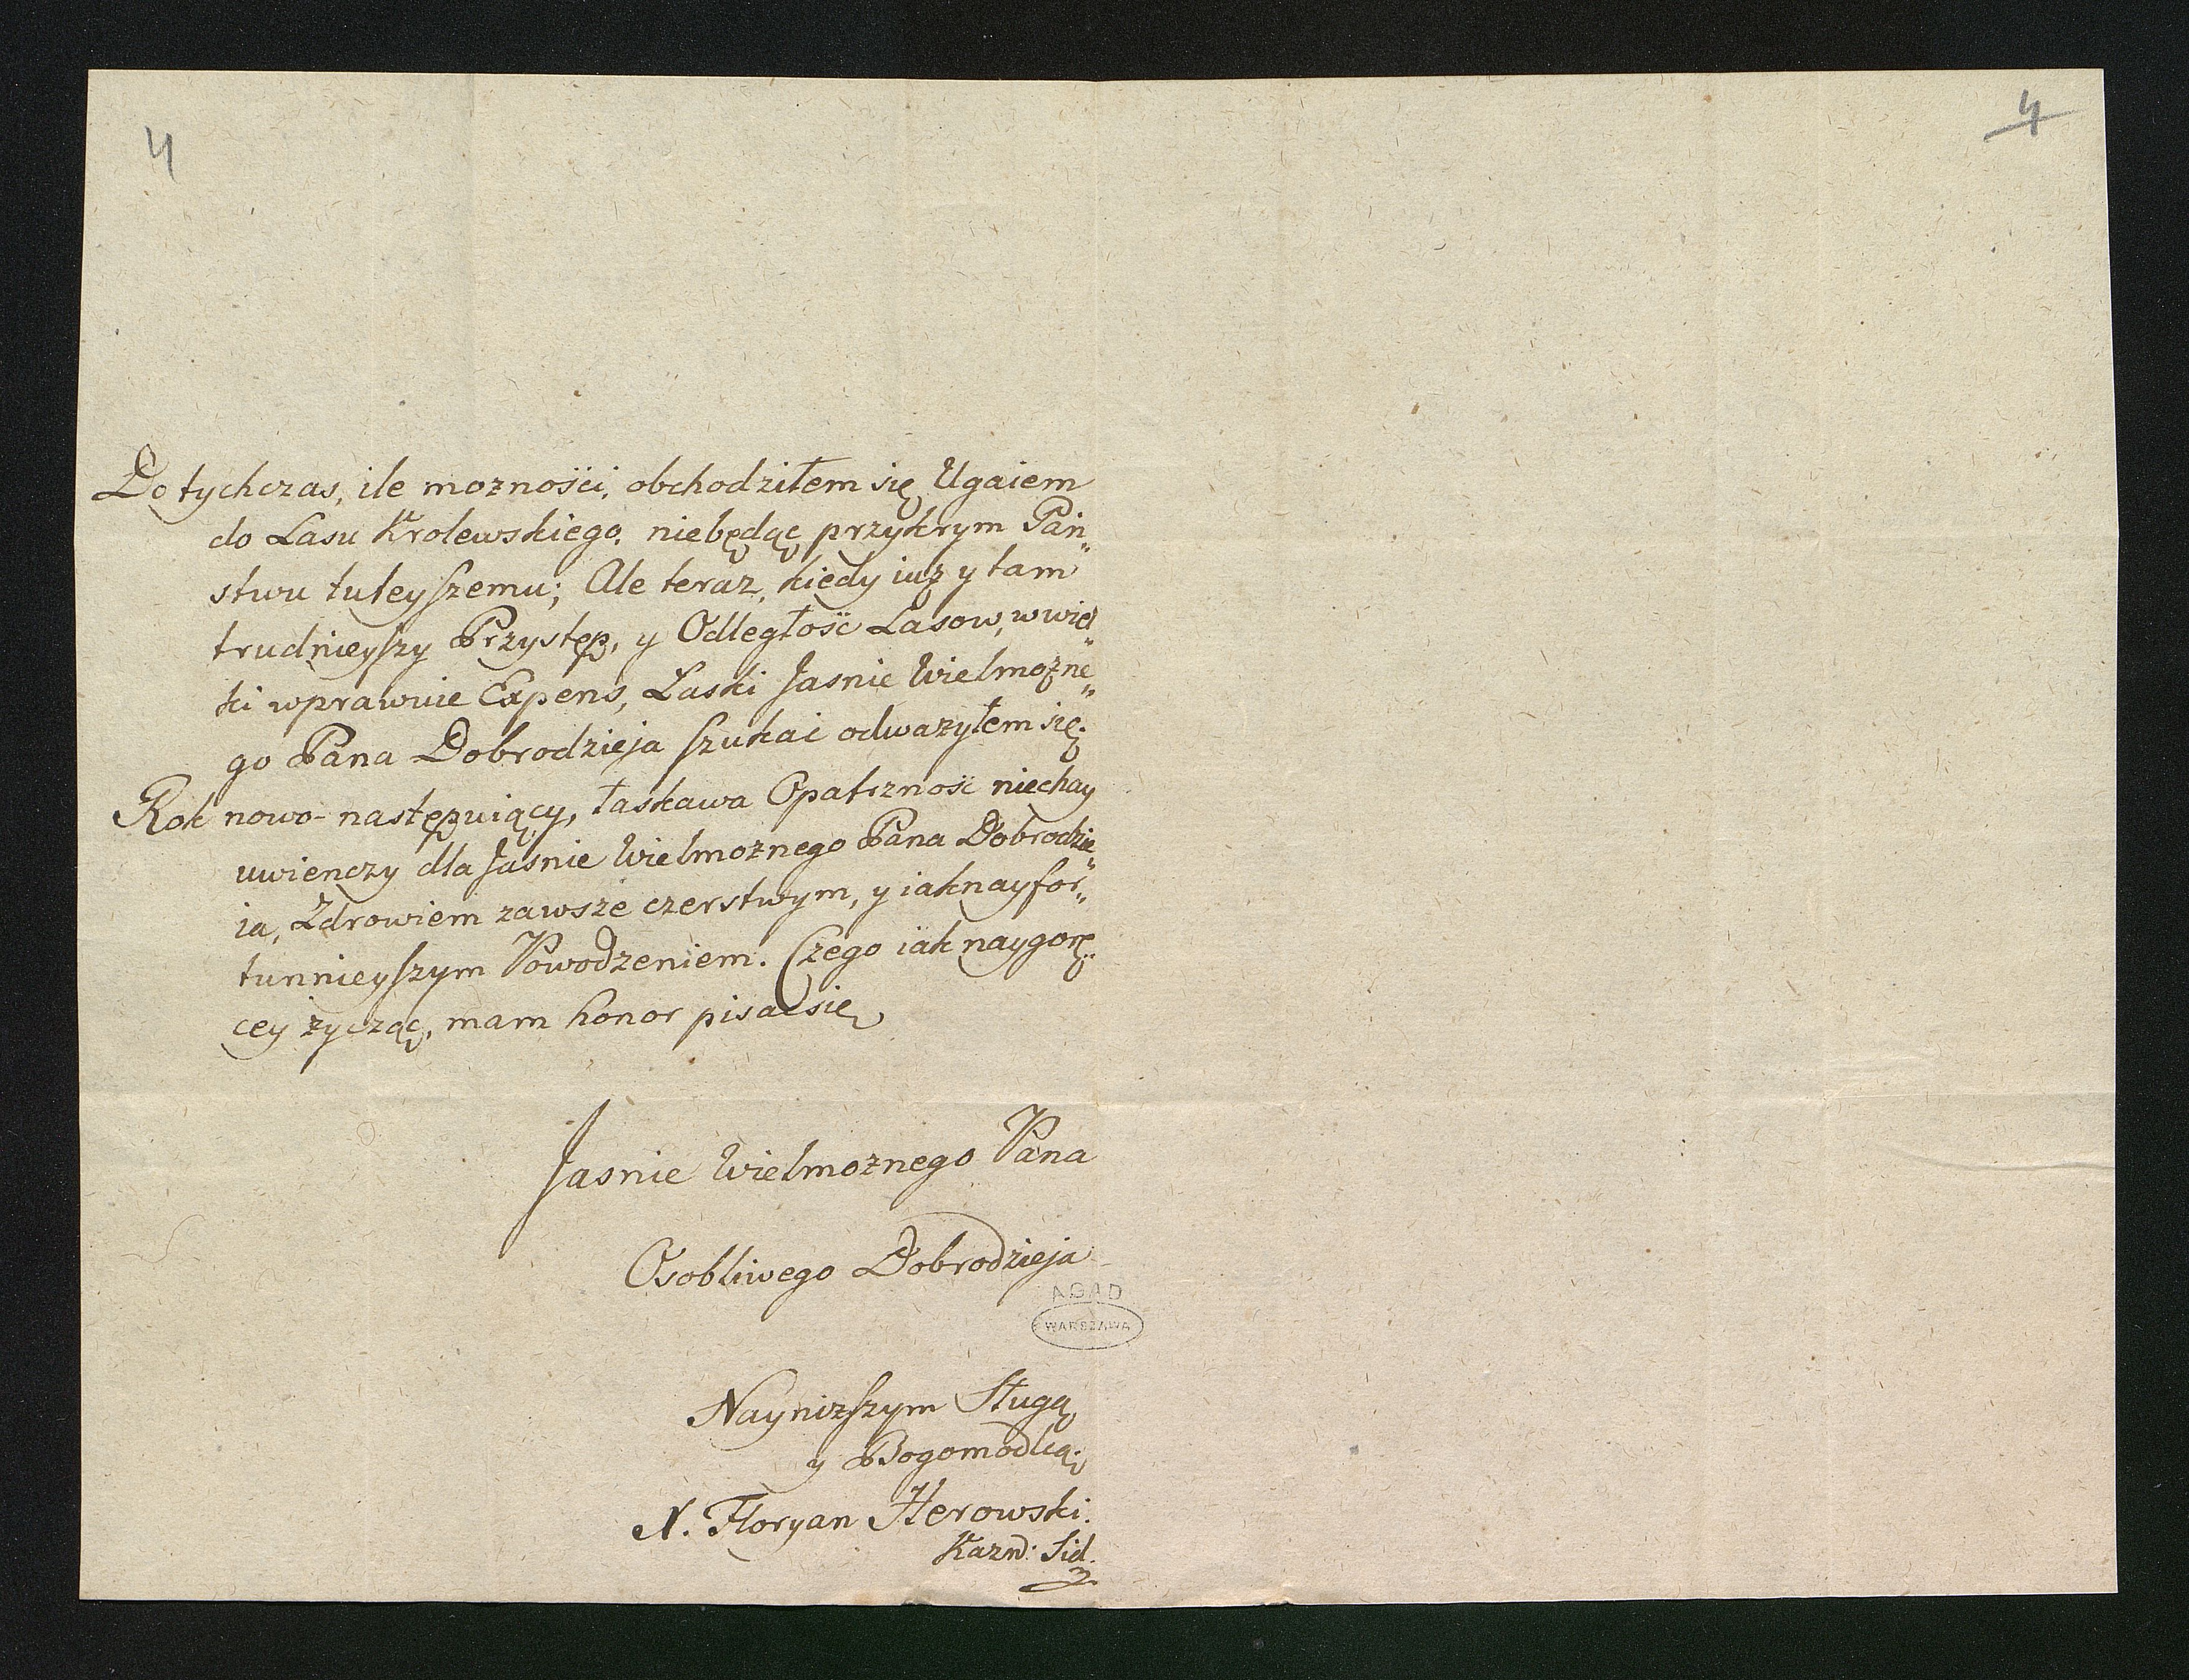 4
4
Do tychczas, ile moznośći, obchodziłem się Ugaiem
do Lasu Krolewskiego, niebędąc przykrym Pań„
stwu tuteyszemu; Ale teraz, kiedy iuż y tam
trudnieyszy Przystęp, y Odległość Lasow, w wiel„
ki wprawuie Expens, Laski Jasnie Wielmożne„
go Pana Dobrodzieja szukać odwazyłem się.
Rok nowo-następuiący, łaskawa Opatrzność niechay
uwienczy dla Jasnie Wielmoznego Pana Dobrodzie„
ia, Zdrowiem zawsze czerstwym, y iaknayfor„
tunnieyszym Powodzeniem. Czego iak naygorę„
cey życząc, mam honor pisać się
Jasnie Wielmoznego Pana
Osobliwego Dobrodzieja
AGAD
WARSZAWA
Nayniższym Sługą
y Bogomodlcą.
N. Floryan Herowski.
Kazn: Sid.